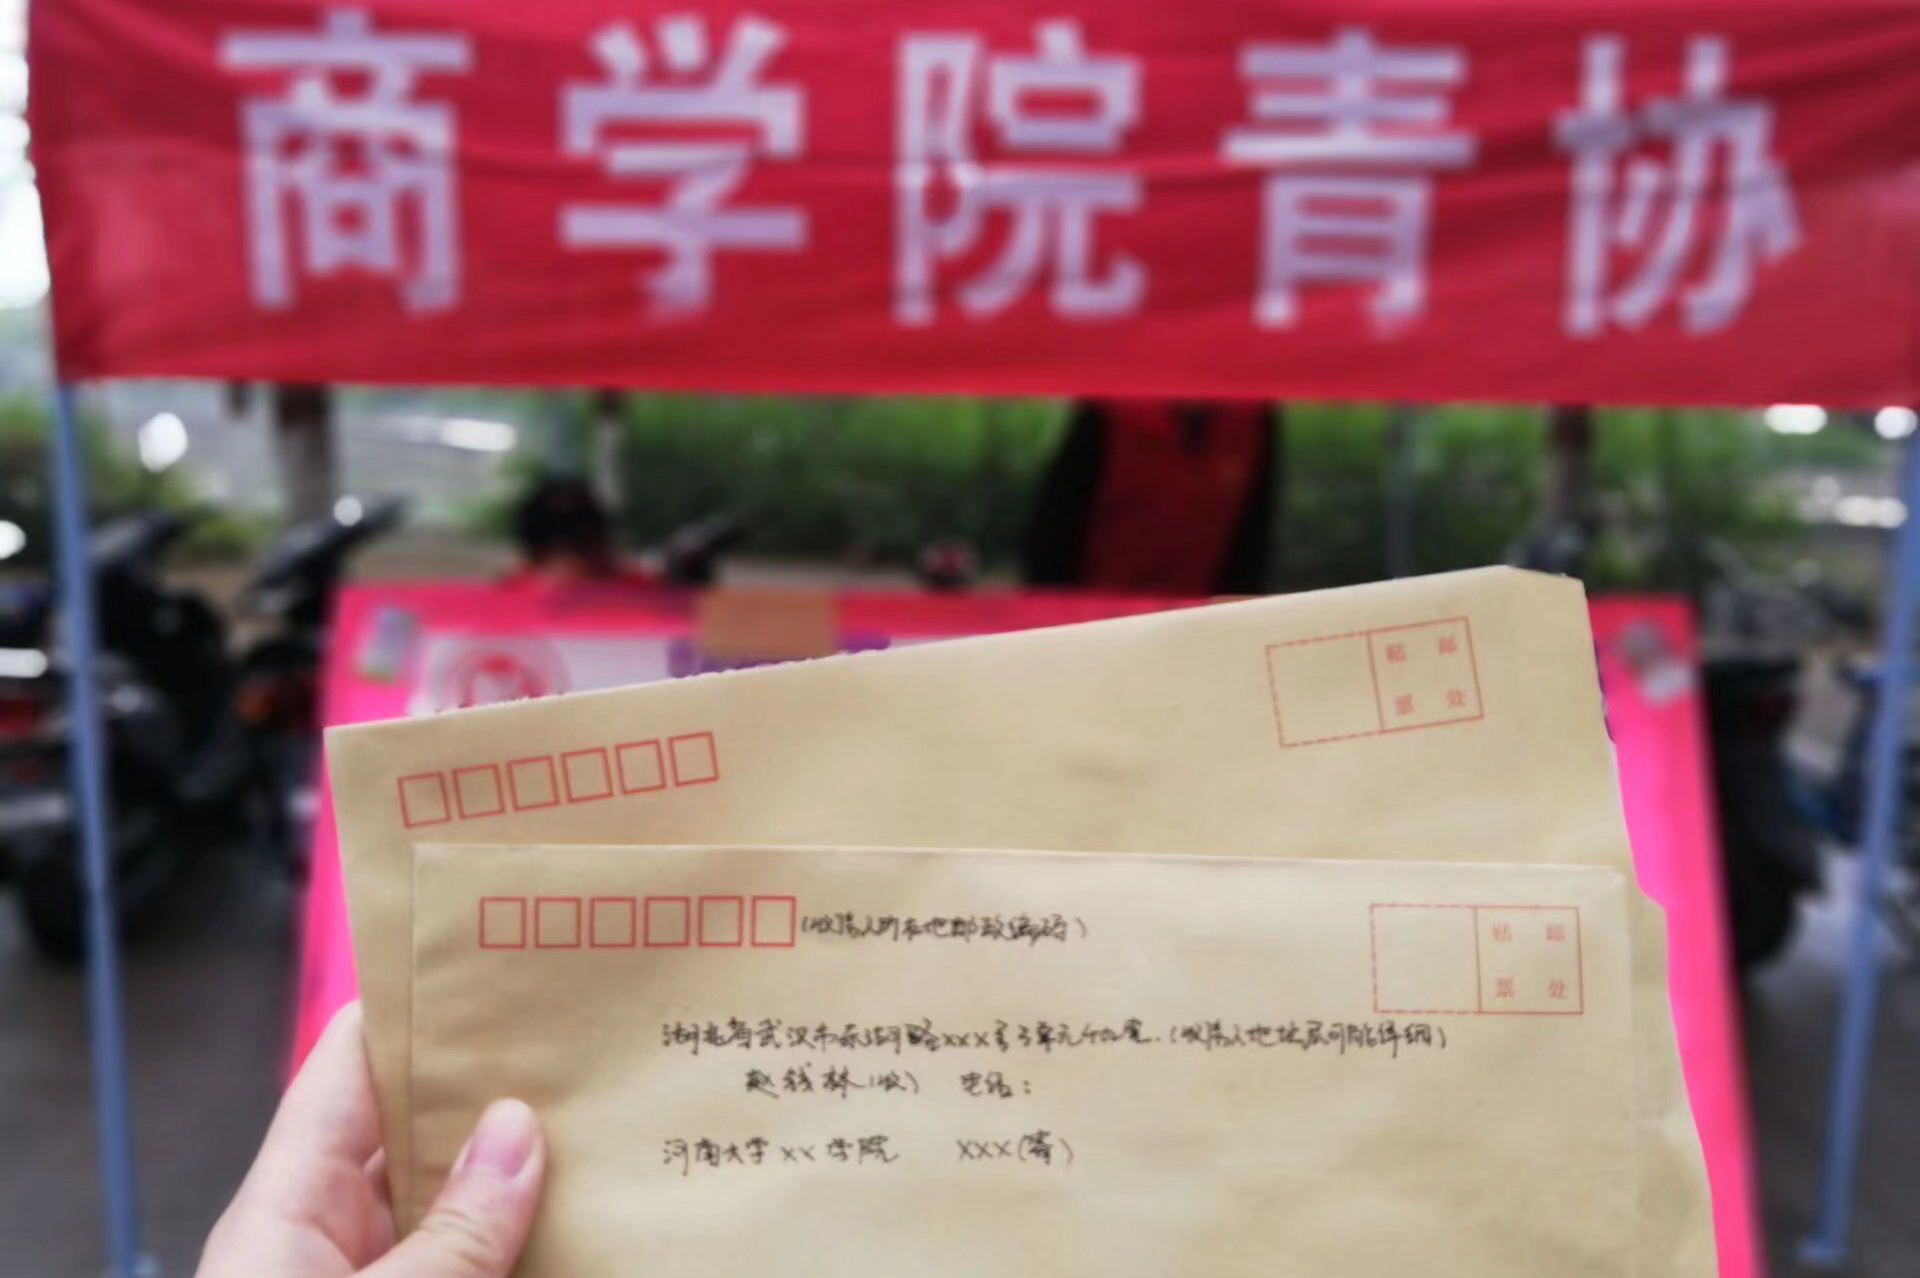 商学院青协
贴 邮
票 处
(收信人所在地邮政编码)
贴 邮
票 处
湖北省武汉市东湖路xxx号3单元402室.(收信人地址尽可能详细)
赵钱林(收) 电话:
河南大学xx学院 XXX(寄)